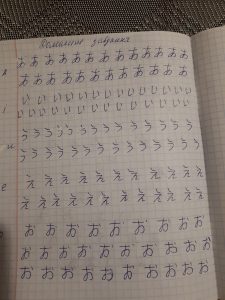 Домашнє завдання
あ あ あ あ あ あ あ あ あ あ あ あ
あ あ あ あ あ あ あ あ あ あ あ あ
i い い い い い い い い い い い
い い い い い い い い い い い い い
う う う う う う う う う う う う
u う う う う う う う う う う う う
え え え え え え え え え
e え え え え え え え え え
お お お お お お お お
お お お お お お お お お
お お お お お お お お お